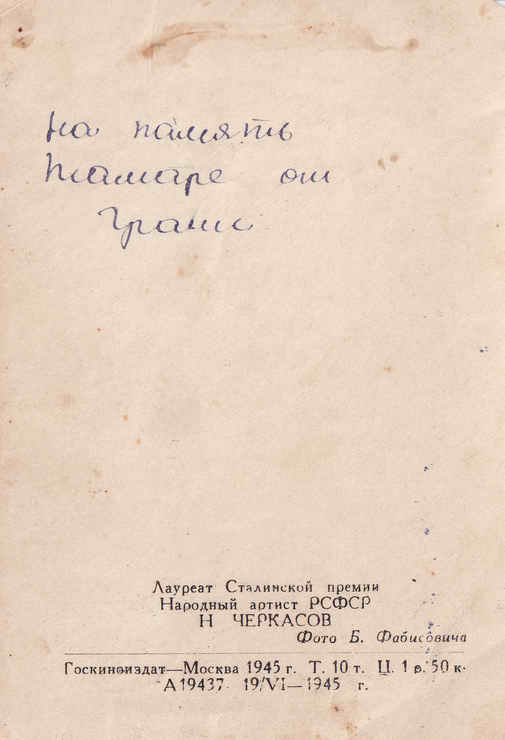 на память
Тамаре от
Лауреат Сталинской премии
Народный артист РСФСР
Н ЧЕРКАСОВ
Фото Б. Фабисовича
Госкиноиздат—Москва 1945 г. Т. 10 т. Ц. 1 р. 50 к.
А19437 19/VI—1945 г.